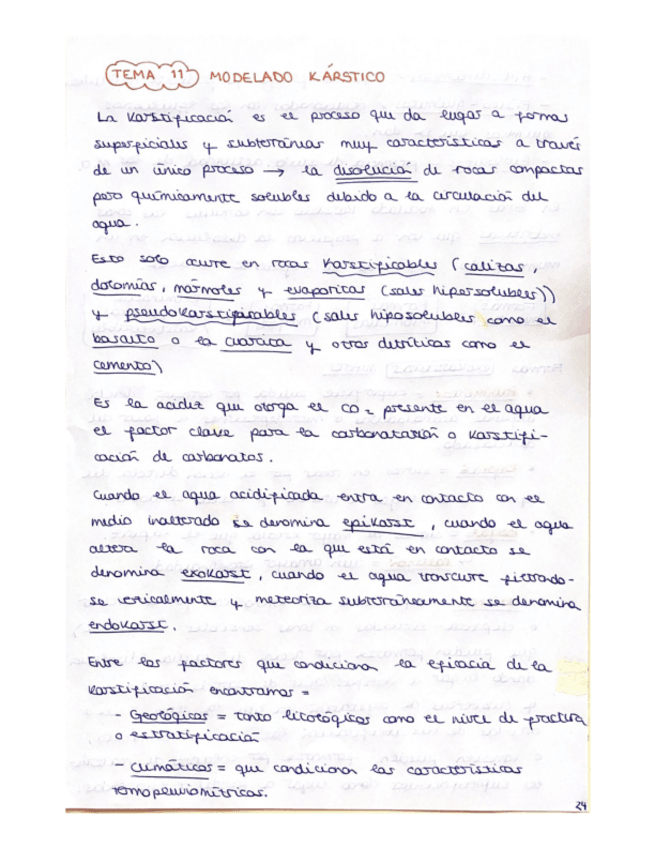 TEMA 11 MODELADO KÁRSTICO
La Karstificación es el proceso que da lugar a formas
superficiales y subterráneas muy características a través
de un único proceso → la disolución de rocas compactas
pero químicamente solubles debido a la circulación del
agua.
Esto solo ocurre en rocas Karstificables (calizas,
dolomías, mármoles y evaporitas (sales hipersolubles))
y pseudokarstificables (sales hiposolubles como el
basalto o la cuarcita y otras detríticas como el
cemento)
Es la acidez que otorga el CO2 presente en el agua
el factor clave para la carbonatación o Karstifi-
cación de carbonatos.
Cuando el agua acidificada entra en contacto con el
medio inalterado se denomina epikarst, cuando el agua
altera la roca con la que está en contacto se
denomina exokarst, cuando el agua transcurre filtrando-
se verticalmente y meteoriza subterráneamente se denomina
endokarst.
Entre los factores que condicionan la eficacia de la
Karstificación encontramos =
- Geológicos = tanto litológicos como el nivel de fractura
o estratificación
- Climáticos = que condicionan las características
termopluviométricas.
24